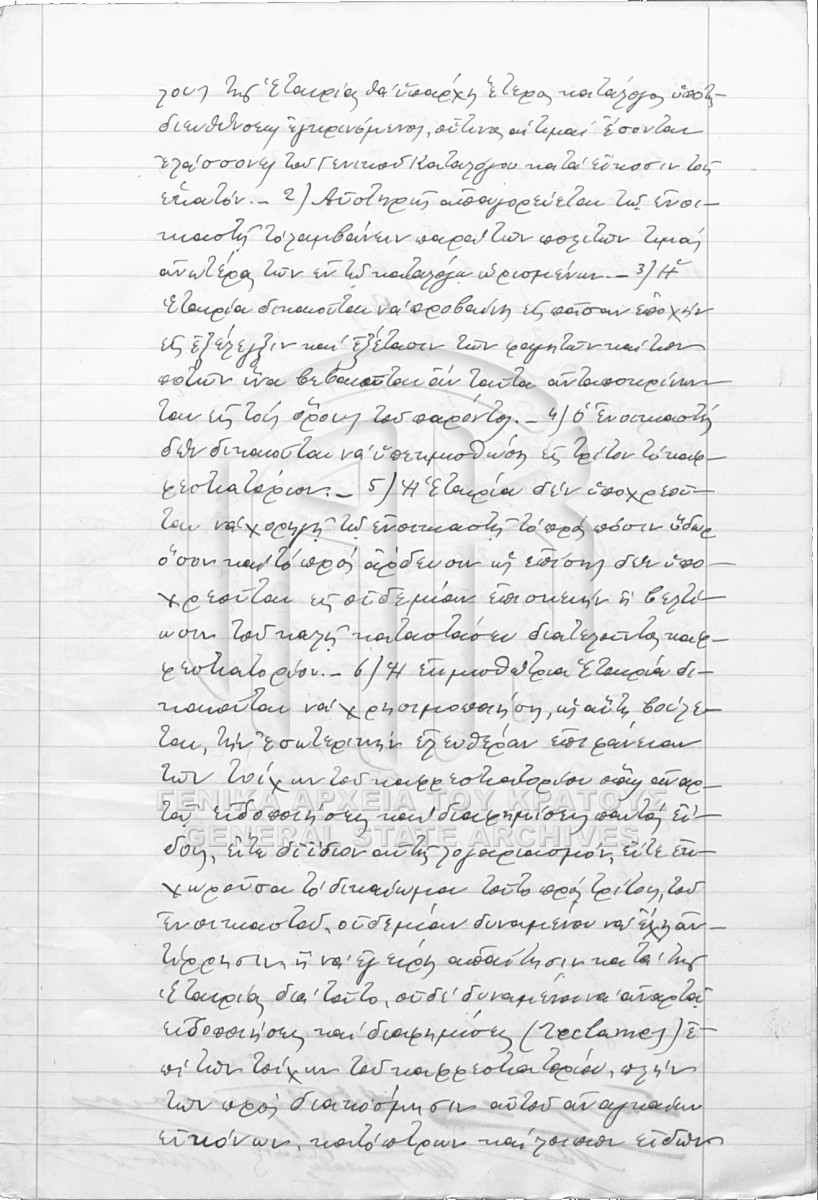 λους της Εταιρίας θα υπάρχη έτερος κατάλογος υπό της
διευθύνσεως εγκρινόμενος, ούτινος αι τιμαί έσονται
ελάσσονες του Γενικού Καταλόγου κατά είκοσιν τοις
εκατόν. – 2) Αυστηρώς απαγορεύεται τω ενοι-
κιαστή το λαμβάνειν παρά των πελατών τιμάς
ανωτέρας των εν τω καταλόγω ωρισμένων. – 3) Η
Εταιρία δικαιούται να προβαίνη εις πάσαν εποχήν
εις εξέλεγξιν και εξέτασιν των φαγητών και των
ποτών ίνα βεβαιούται αν ταύτα ανταποκρίνων-
ται εις τους όρους του παρόντος. – 4) Ο Ενοικιαστής
δεν δικαιούται να υπεκμισθώση εις τρίτον το καφ-
φεστιατόριον. – 5) Η Εταιρία δεν υποχρεού-
ται να χορηγή τω ενοικιαστή το προς πόσιν ύδωρ
όσον και το προς άρδευσιν ως επίσης δεν υπο-
χρεούται εις ουδεμίαν επισκευήν ή βελτί-
ωσιν του καλής καταστάσεως διατελούντος καφ-
φεστιατορίου. – 6) Η εκμισθώτρια Εταιρία δι-
καιούται να χρησιμοποιήση, ως αύτη βούλε-
ται, την εσωτερικήν ελευθέραν επιφάνειαν
των τοίχων του καφφεστιατορίου όπως αναρ-
τά ειδοποιήσεις και διαφημίσεις παντός εί-
δους, είτε δι' ίδιον αυτής λογαριασμόν, είτε εκ-
χωρούσα το δικαίωμα τούτο προς τρίτους, του
Ενοικιαστού, ουδεμίαν δυναμένου να έχη αν-
τίρρησιν ή να εγείρη απαίτησιν κατά της
Εταιρίας δια τούτο, ουδέ δυναμένου να αναρτά
ειδοποιήσεις και διαφημίσεις (reclames) ε-
πί των τοίχων του καφφεστιατορίου, πλην
των προς διακόσμησιν αυτού αναγκαίων
εικόνων, κατόπτρων και λοιπών ειδών
ΓΕΝΙΚΑ ΑΡΧΕΙΑ ΤΟΥ ΚΡΑΤΟΥΣ
GENERAL STATE ARCHIVES